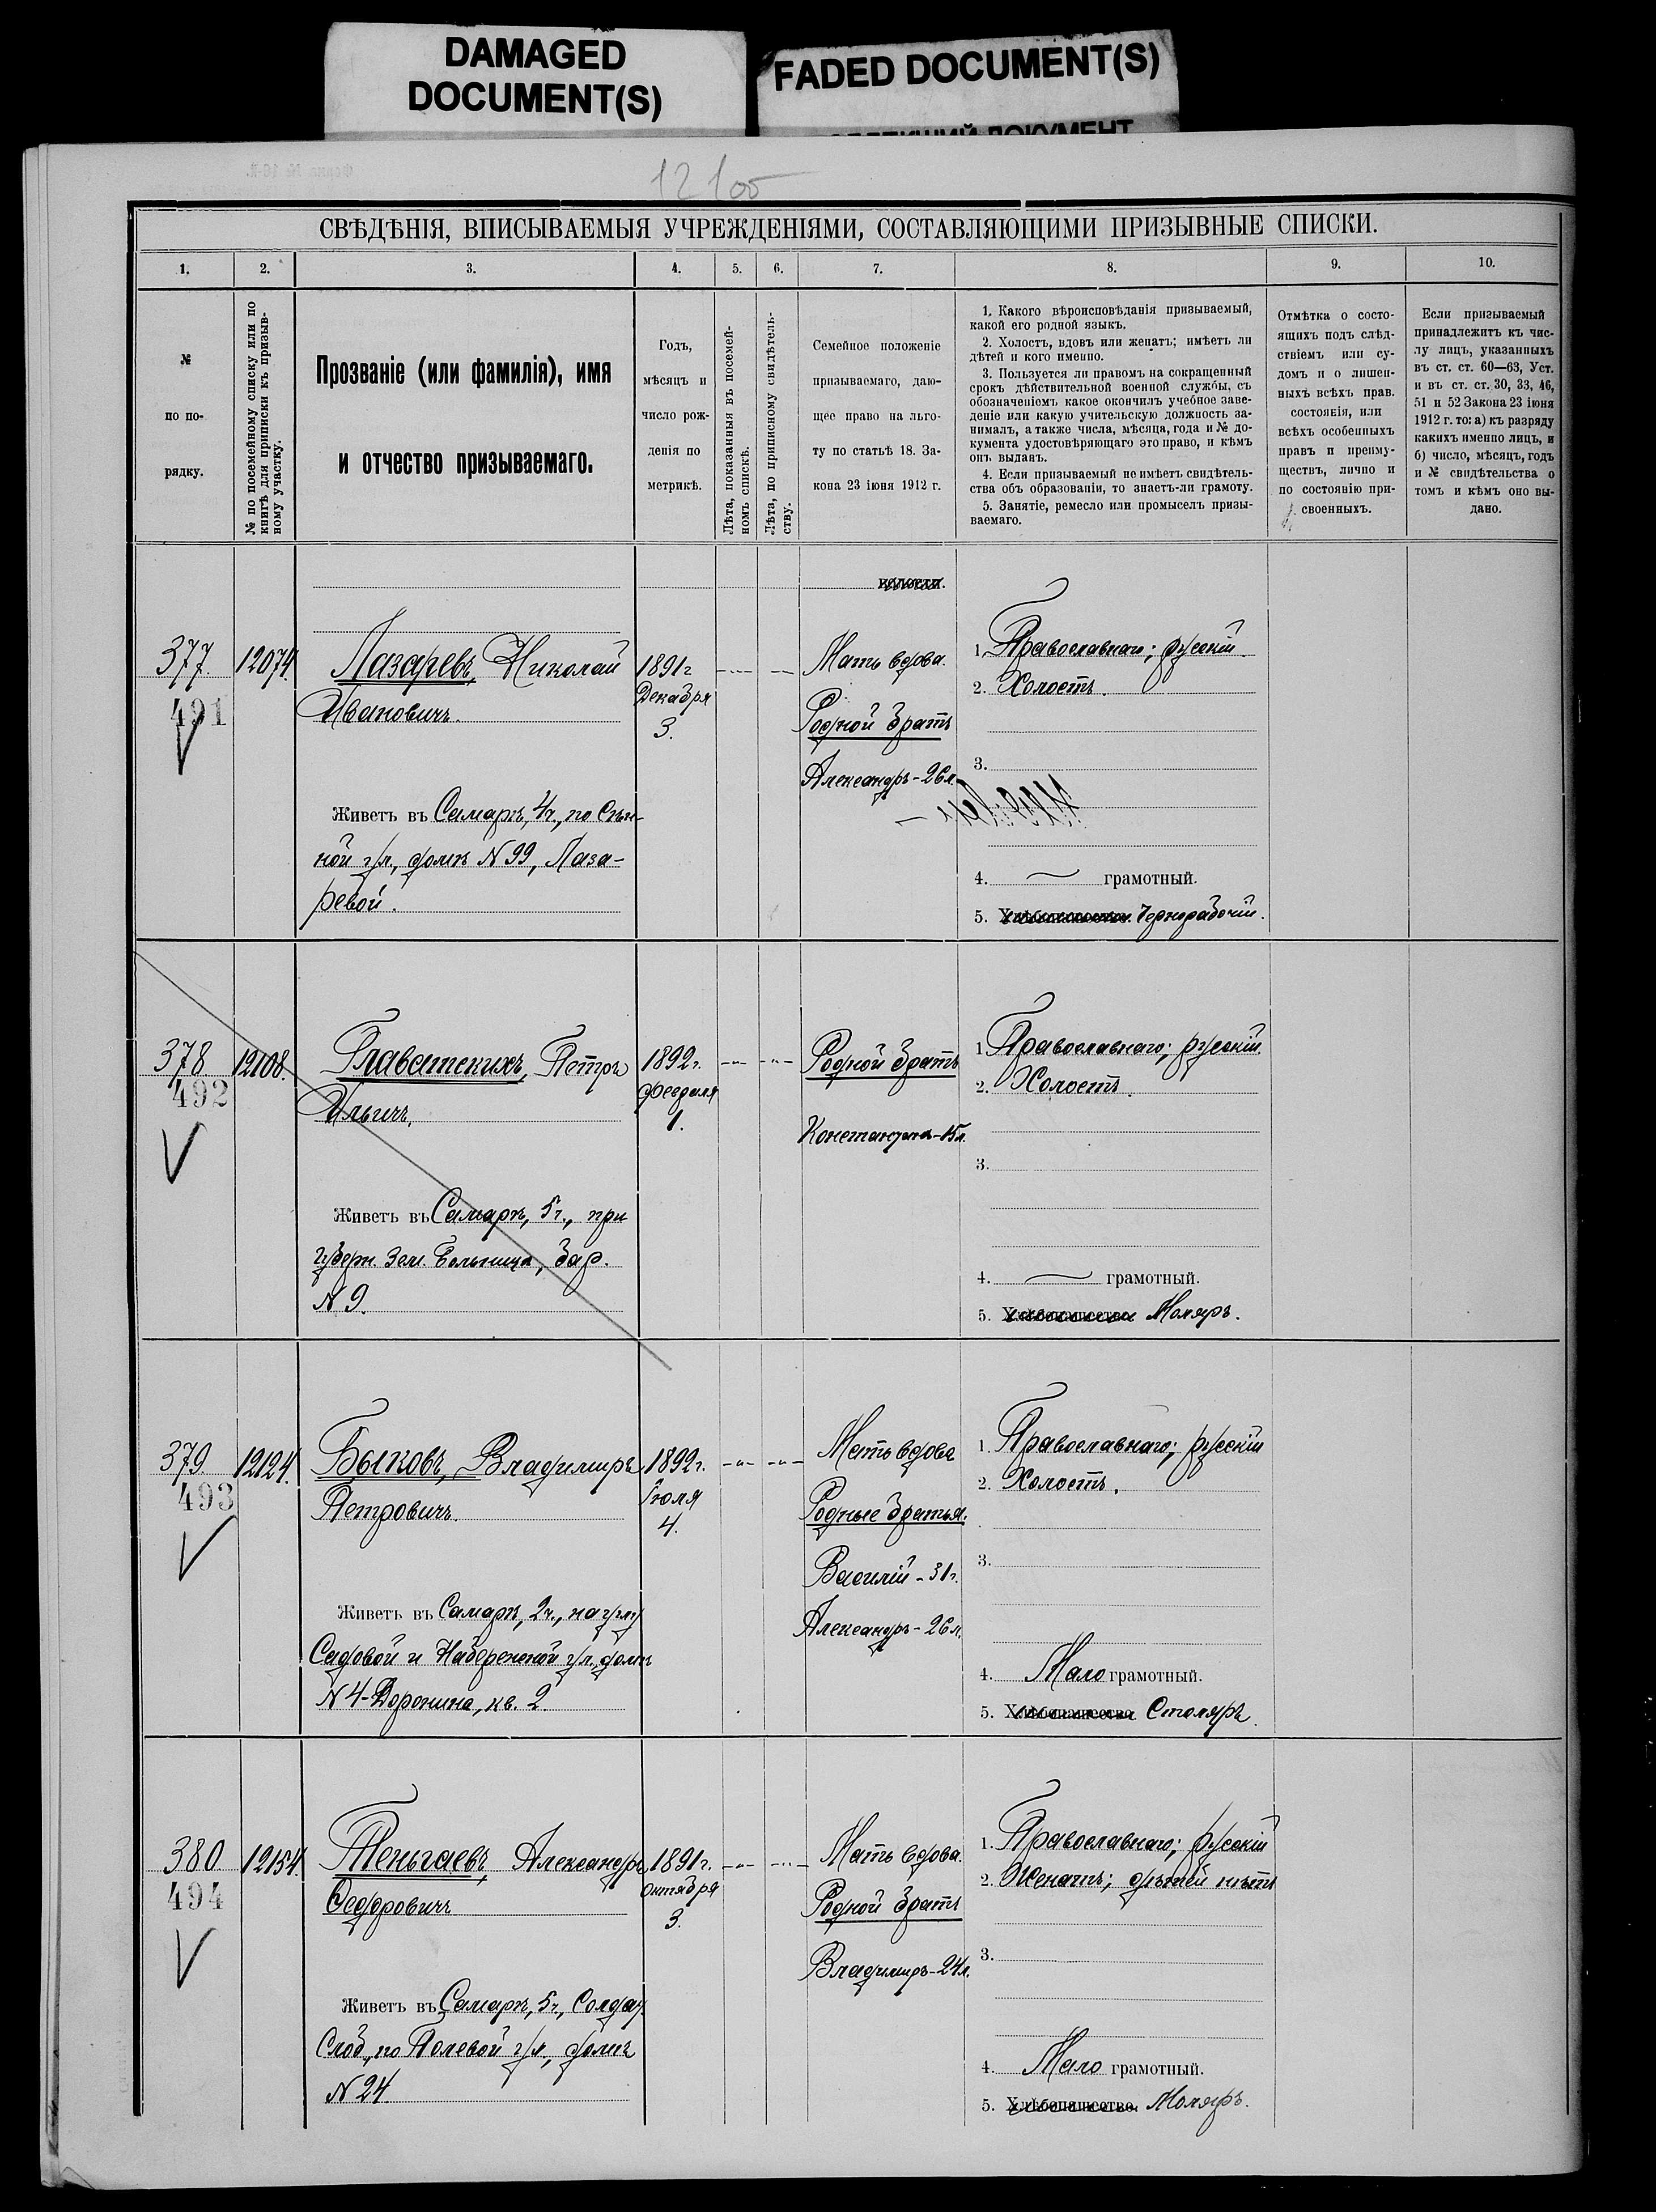 DAMAGED
DOCUMENT(S)
FADED DOCUMENT(S)
12105
СВѢДѢНІЯ, ВПИСЫВАЕМЫЯ УЧРЕЖДЕНІЯМИ, СОСТАВЛЯЮЩИМИ ПРИЗЫВНЫЕ СПИСКИ.
1. 2. 3. 4. 5. 6. 7. 8. 9. 10.
№
по по-
рядку.
№ по посемейному списку или по
книгѣ для приписки къ призыв-
ному участку.
Прозваніе (или фамилія), имя
и отчество призываемаго.
Годъ,
мѣсяцъ и
число рож-
денія по
метрикѣ.
Лѣта, показанныя въ посемей-
номъ спискѣ.
Лѣта, по приписному свидѣтель-
ству.
Семейное положеніе
призываемаго, даю-
щее право на льго-
ту по статьѣ 18. За-
кона 23 іюня 1912 г.
1. Какого вѣроисповѣданія призываемый,
какой его родной языкъ.
2. Холостъ, вдовъ или женатъ; имѣетъ ли
дѣтей и кого именно.
3. Пользуется ли правомъ на сокращенный
срокъ дѣйствительной военной службы, съ
обозначеніемъ какое окончилъ учебное заве-
деніе или какую учительскую должность за-
нималъ, а также числа, мѣсяца, года и № до-
кумента удостовѣряющаго это право, и кѣмъ
онъ выданъ.
4. Если призываемый не имѣетъ свидѣтель-
ства объ образованіи, то знаетъ-ли грамоту.
5. Занятіе, ремесло или промыселъ призы-
ваемаго.
Отмѣтка о состо-
ящихъ подъ слѣд-
ствіемъ или су-
домъ и о лишен-
ныхъ всѣхъ прав.
состоянія, или
всѣхъ особенныхъ
правъ и преиму-
ществъ, лично и
по состоянію при-
своенныхъ.
Если призываемый
принадлежитъ къ чис-
лу лицъ, указанныхъ
въ ст. ст. 60—63, Уст.
и въ ст. ст. 30, 33, 46,
51 и 52 Закона 23 іюня
1912 г. то: а) къ разряду
какихъ именно лицъ, и
б) число, мѣсяцъ, годъ
и № свидѣтельства о
томъ и кѣмъ оно вы-
дано.
волости.
377. 12074.
491
Лазаревъ, Николай
Ивановичъ.
1891 г
Декабря
3.
Мать вдова.
Родной братъ
Александръ - 26 л.
1. Православнаго; русскій.
2. Холостъ.
3.
4. грамотный.
5. Хлѣбопашество. Чернорабочій.
Живетъ въ Самарѣ, 4ч., по Сѣн-
ной ул., домъ N 99, Лаза-
ревой.
378 12108.
492
Главатскихъ, Петръ
Ильичъ.
1892 г.
Февраля
1.
Родной братъ
Константинъ - 15 л.
1. Православнаго; русскій.
2. Холостъ.
3.
4. грамотный.
5. Хлѣбопашество. Моляръ.
Живетъ въ Самарѣ, 5 ч., при
губерн. Зем. Больницѣ, бар.
N 9.
379. 12124.
493
Быковъ, Владимиръ
Петровичъ.
1892 г.
Іюля
4.
Мать вдова
Родные братья.
Василій - 31 г.
Александръ - 26 л.
1. Православнаго; русскій
2. Холостъ.
3.
4. Мало грамотный.
5. Хлѣбопашество. Столяръ.
Живетъ въ Самарѣ, 2ч., на углу
Садовой и Набережной ул., домъ
N 4 - Доронина, кв. 2.
380 12154.
494
Теньгаевъ, Александръ
Федоровичъ
1891 г.
октября
3.
Мать вдова.
Родной братъ
Владимиръ - 24 л.
1. Православнаго; русскій
2. Женатъ; дѣтей нѣтъ
3.
4. Мало грамотный.
5. Хлѣбопашество. Моляръ.
Живетъ въ Самарѣ, 5ч., Солдат.
Слоб., по Полевой ул., домъ
N 24.